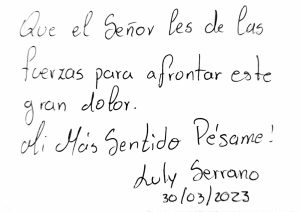 Que el Señor les de las
fuerzas para afrontar este
gran dolor.
Mi Más Sentido Pésame!
Luly Serrano
30/03/2023